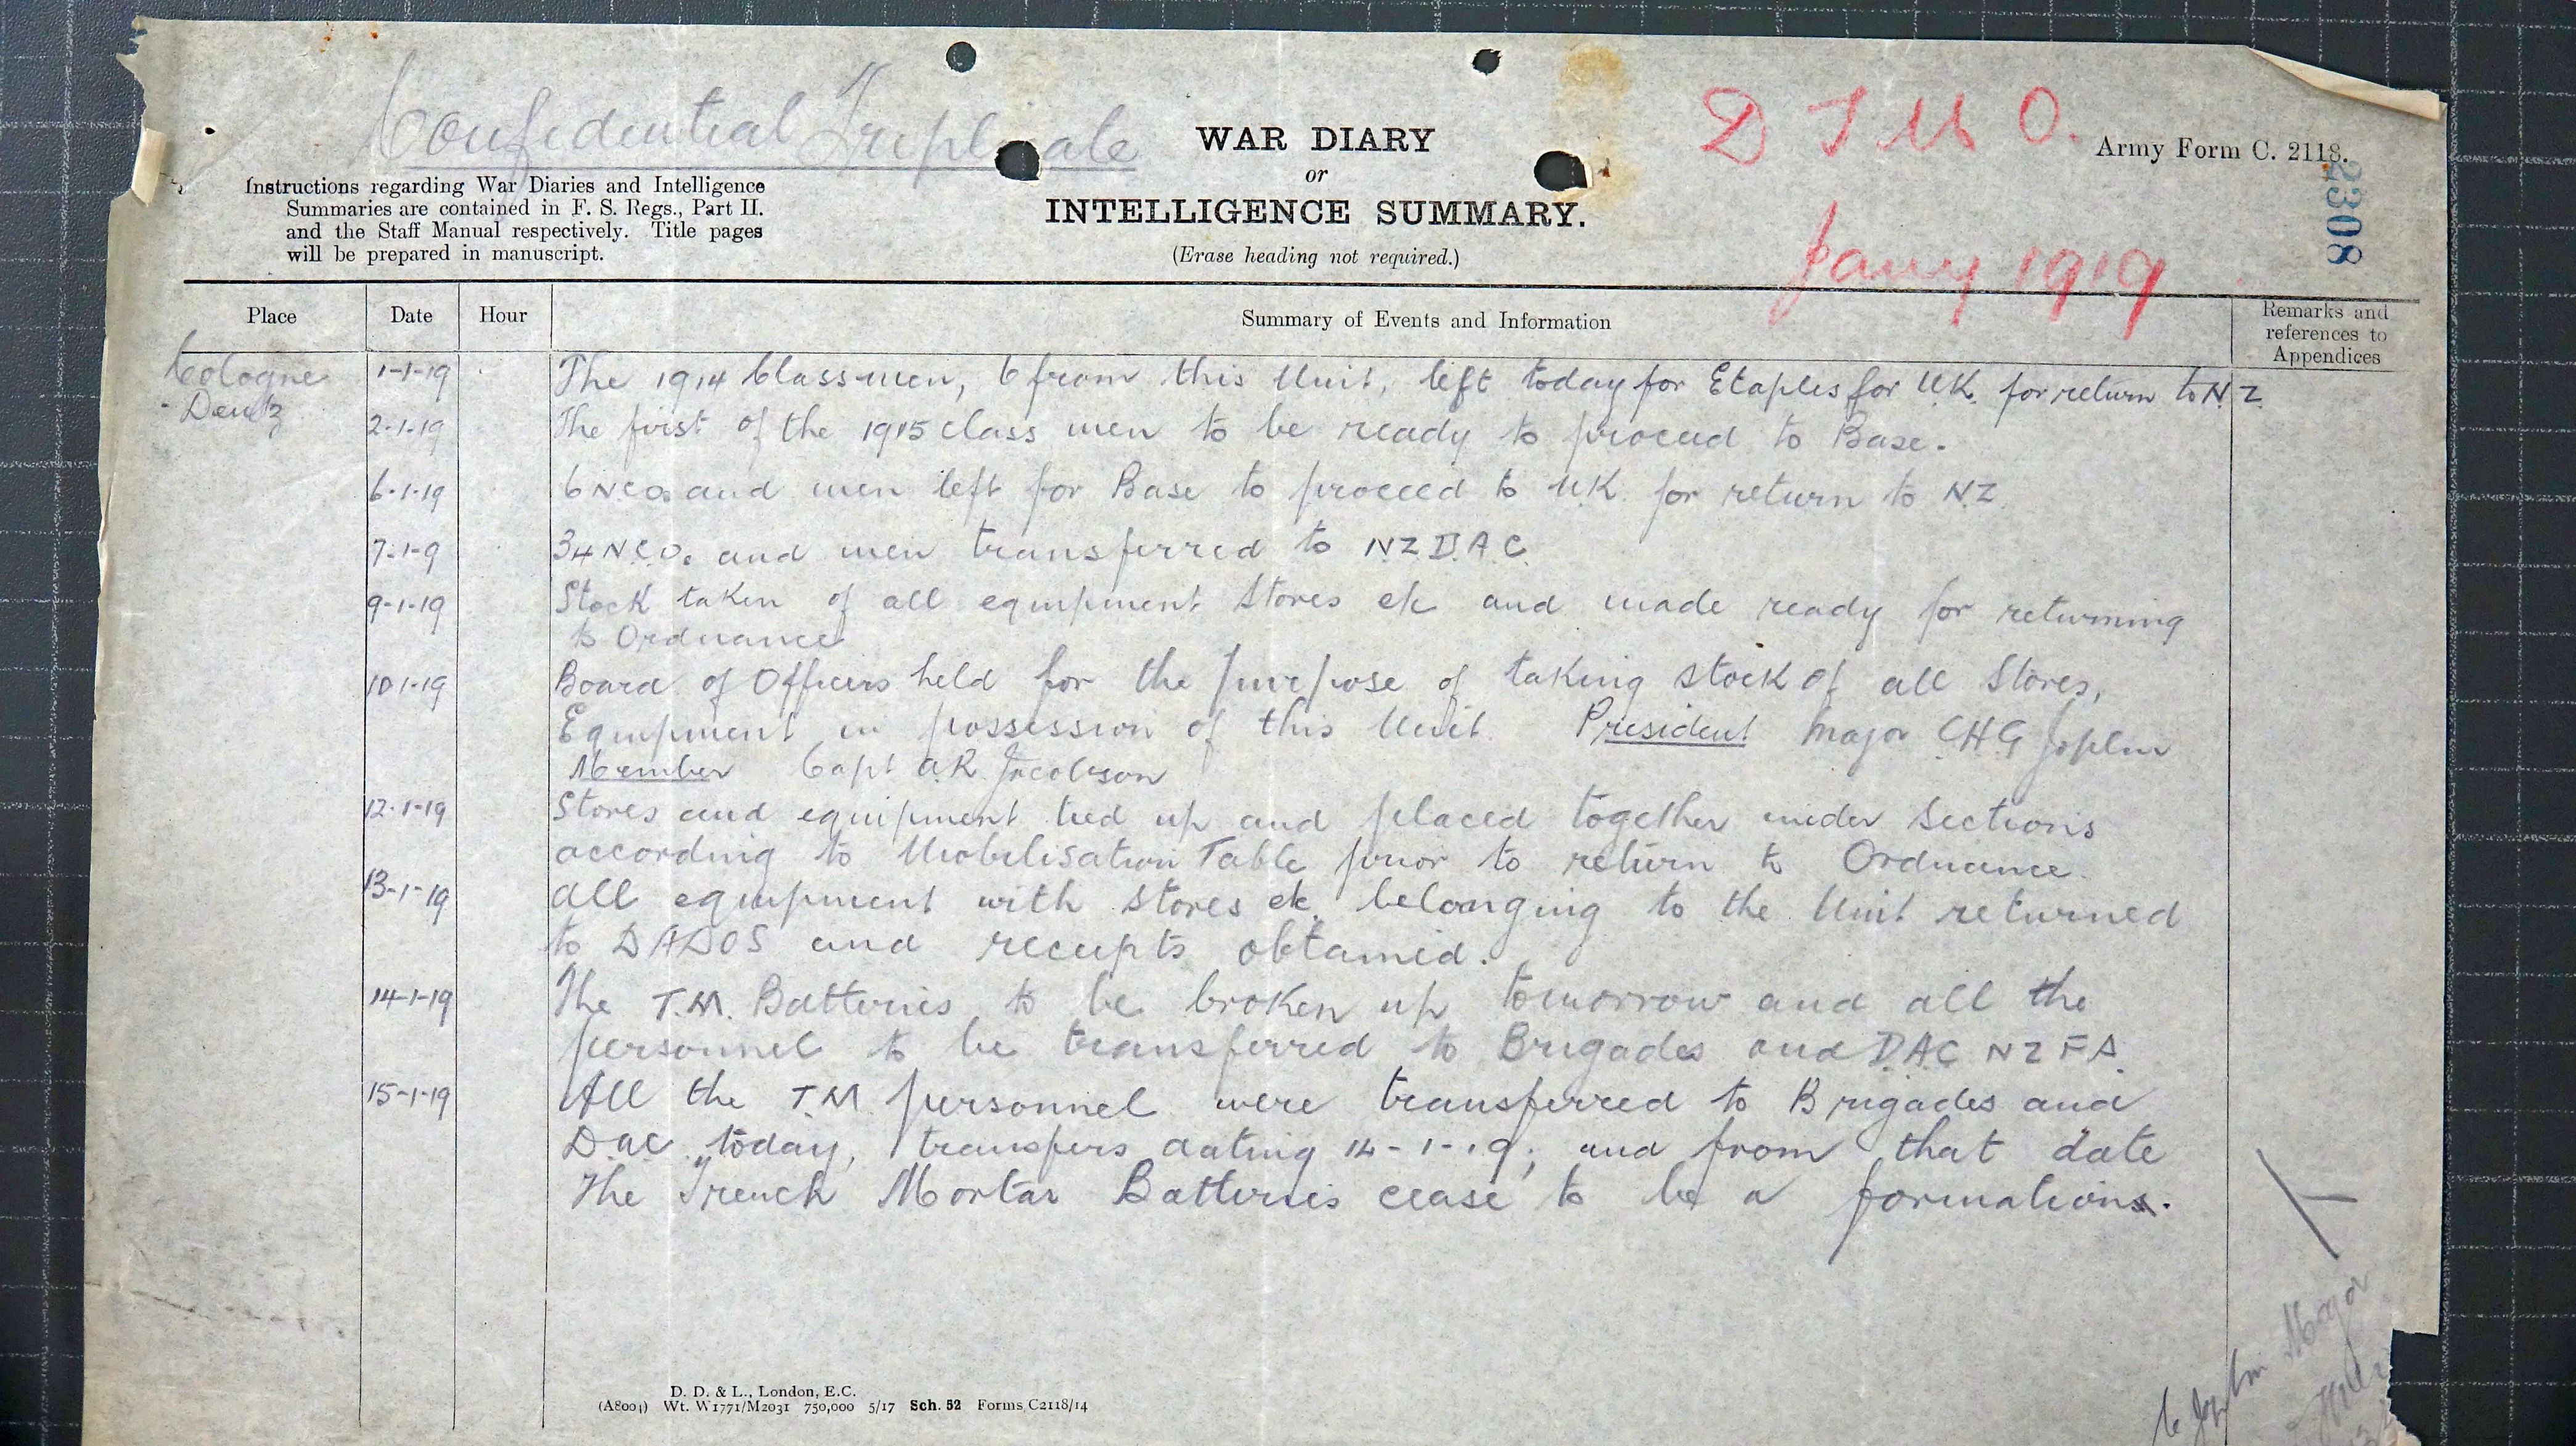 Confidential Triplicate
D T M O.
WAR DIARY
or
INTELLIGENCE SUMMARY.
(Erase heading not required.)
Army Form C. 2118.
2308
Instructions regarding War Diaries and Intelligence
Summaries are contained in F. S. Regs., Part II.
and the Staff Manual respectively. Title pages
will be prepared in manuscript.
Jany 1919
Place Date Hour Summary of Events and Information Remarks and references to Appendices
Cologne 1-1-19 The 1914 Class men, 6 from this Unit, left today for Etaples for U.K. for return to N.Z.
-Deutz 2-1-19 The first of the 1915 class men to be ready to proceed to Base.
6-1-19 6 N.C.Os and men left for Base to proceed to U.K. for return to NZ
7-1-9 34 N.C.Os and men transferred to N.Z.D.A.C.
9-1-19 Stock taken of all equipment Stores etc and made ready for returning
to Ordnance
10 1-19 Board of Officers held for the purpose of taking stock of all Stores,
Equipment in possession of this Unit. President Major C.H.G Joplin
Member Capt A.R. Jacobson
12-1-19 Stores and equipment tied up and placed together under Sections
according to Mobilisation Table prior to return to Ordnance.
13-1-19 All equipment with stores etc. belonging to the Unit returned
to DADOS and receipts obtained.
14-1-19 The T.M. Batteries to be broken up tomorrow and all the
personnel to be transferred to Brigades and D.A.C NZFA.
15-1-19 All the T.M. personnel were transferred to Brigades and
D.A.C. today, transfers dating 14-1-19, and from that date
The Trench Mortar Batteries cease to be a formations.
Joplin Major
D. D. & L., London, E.C.
(A8004) Wt. W1771/M2031 750,000 5/17 Sch. 52 Forms/C2118/14